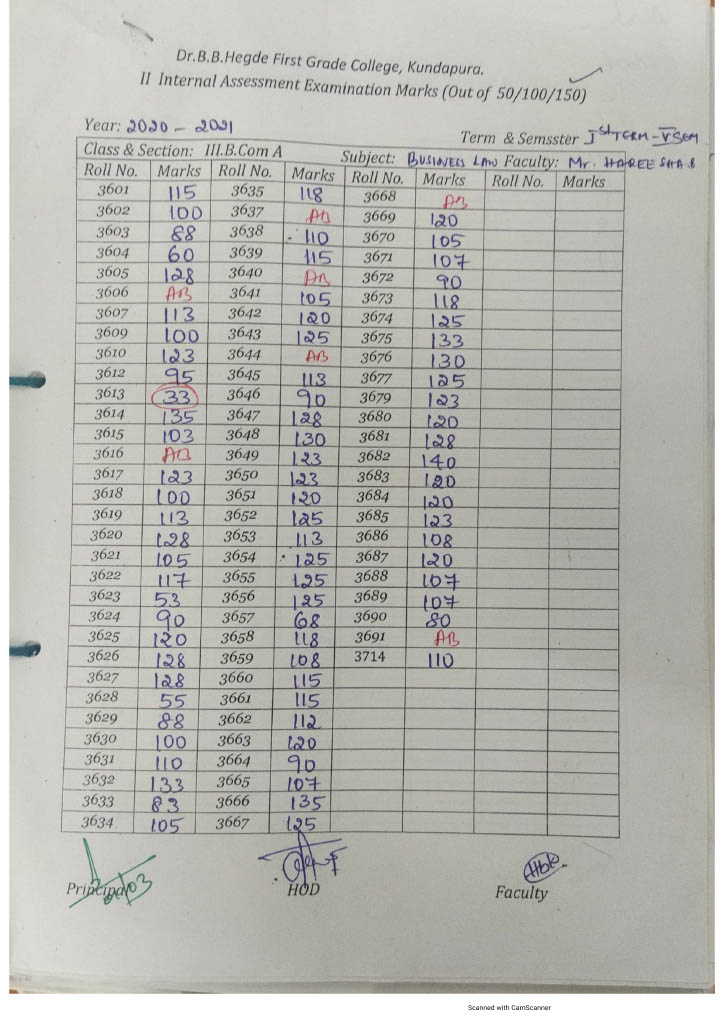 Dr.B.B.Hegde First Grade College, Kundapura.
II Internal Assessment Examination Marks (Out of 50/100/150)
Year: 2020 - 2021
Term & Semsster Ist TERM - V SEM
Class & Section: III.B.Com A Subject: BUSINESS LAW Faculty: Mr. HAREESHA B
Roll No. Marks Roll No. Marks Roll No. Marks Roll No. Marks
3601 115 3635 118 3668 AB
3602 100 3637 AB 3669 120
3603 88 3638 110 3670 105
3604 60 3639 115 3671 107
3605 128 3640 AB 3672 90
3606 AB 3641 105 3673 118
3607 113 3642 120 3674 125
3609 100 3643 125 3675 133
3610 123 3644 AB 3676 130
3612 95 3645 113 3677 125
3613 33 3646 90 3679 123
3614 135 3647 128 3680 120
3615 103 3648 130 3681 128
3616 AB 3649 123 3682 140
3617 123 3650 123 3683 120
3618 100 3651 120 3684 120
3619 113 3652 125 3685 123
3620 128 3653 113 3686 108
3621 105 3654 125 3687 120
3622 117 3655 125 3688 107
3623 53 3656 125 3689 107
3624 90 3657 68 3690 80
3625 120 3658 118 3691 AB
3626 128 3659 108 3714 110
3627 128 3660 115
3628 55 3661 115
3629 88 3662 112
3630 100 3663 120
3631 110 3664 90
3632 133 3665 107
3633 83 3666 135
3634 105 3667 125
Principal HOD Faculty
Scanned with CamScanner